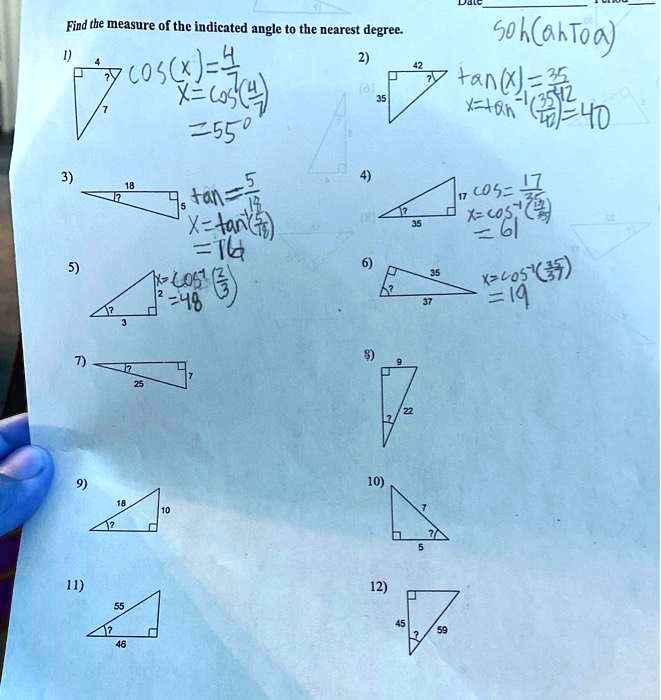 Date
Find the measure of the indicated angle to the nearest degree.
Soh(ahToa)
1)
4
?
7
cos(x)=4/7
x=cos(4/7)
=55°
2)
42
?
35
tan(x)=35/42
x=tan⁻¹(35/42)=40
3)
18
?
5
tan=5/18
x=tan⁻¹(5/18)
=16
4)
17
?
35
cos=17/35
x=cos⁻¹(17/35)
=61
5)
2
?
3
x=cos⁻¹(2/3)
=48
6)
35
?
37
x=cos⁻¹(35/37)
=19
7)
?
7
25
8)
9
22
?
9)
18
10
?
10)
7
?
5
11)
55
?
46
12)
45
59
?